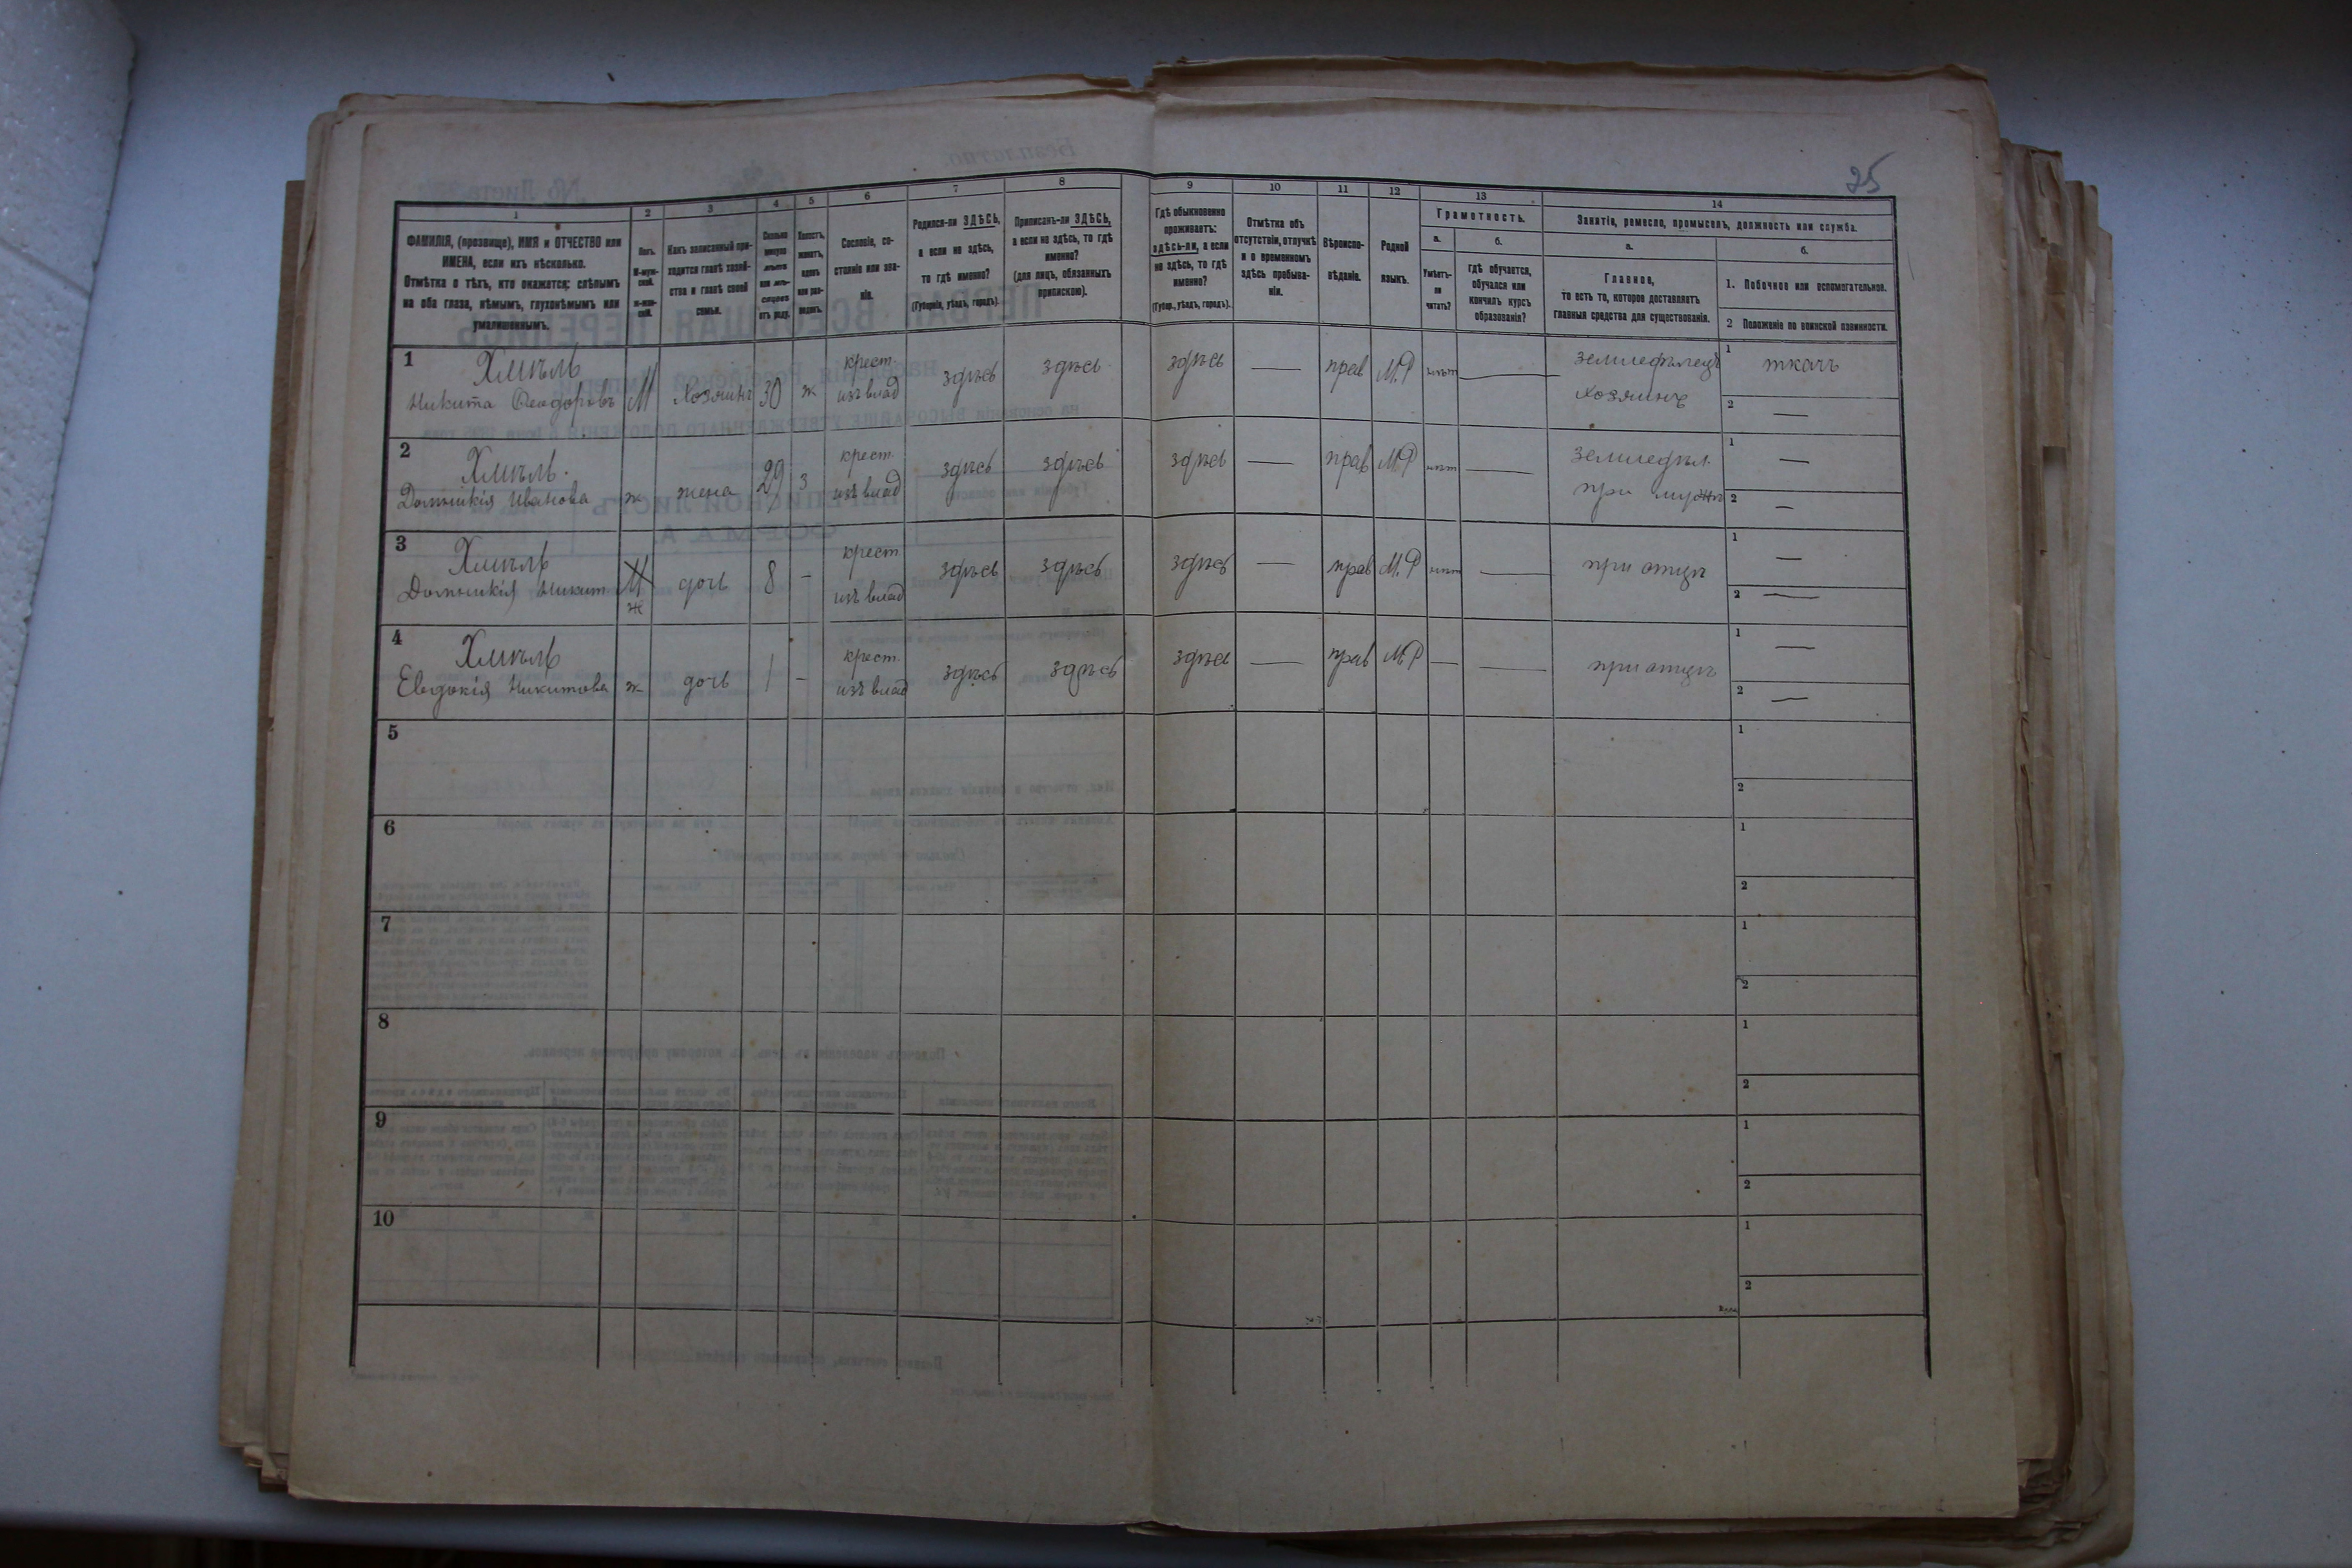 25
1 2 3 4 5 6 7 8 9 10 11 12 13 14
ФАМИЛІЯ, (прозвище), ИМЯ и ОТЧЕСТВО или
ИМЕНА, если ихъ нѣсколько.
Отмѣтка о тѣхъ, кто окажется: слѣпымъ
на оба глаза, нѣмымъ, глухонѣмымъ или
умалишеннымъ.
Полъ.
М-муж-
ской.
ж-жен-
скій.
Какъ записанный при-
ходится главѣ хозяй-
ства и главѣ своей
семьи.
Сколько
минуло
лѣтъ
или мѣ-
сяцевъ
отъ роду.
Холостъ,
женатъ,
вдовъ
или раз-
веденъ.
Сословіе, со-
стояніе или зва-
ніе.
Родился-ли ЗДѢСЬ,
а если не здѣсь,
то гдѣ именно?
(Губернія, уѣздъ, городъ).
Приписанъ-ли ЗДѢСЬ,
а если не здѣсь, то гдѣ
именно?
(для лицъ, обязанныхъ
припискою).
Гдѣ обыкновенно
проживаетъ:
здѣсь-ли, а если
не здѣсь, то гдѣ
именно?
(Губер., уѣздъ, городъ).
Отмѣтка объ
отсутствіи, отлучкѣ
и о временномъ
здѣсь пребыва-
ніи.
Вѣроиспо-
вѣданіе.
Родной
языкъ.
Грамотность.
а. б.
Умѣетъ-
ли
читать?
гдѣ обучается,
обучался или
кончилъ курсъ
образованія?
Занятіе, ремесло, промыселъ, должность или служба.
а. б.
Главное,
то есть то, которое доставляетъ
главныя средства для существованія.
1. Побочное или вспомогательное.
2 Положеніе по воинской повинности.
1 Хмѣль крест. здѣсь здѣсь здѣсь — прав М.Р нѣтъ — земледѣлецъ 1 ткачъ
Никита Ѳеодоровъ М Хозяинъ 30 ж изъ влад хозяинъ 2 —
2 Хмѣль. крест. здѣсь здѣсь здѣсь — прав М.Р нѣт — земледѣл. 1 —
Иванова ж жена 29 з изъ влад при мужѣ 2 —
3 Хмѣль крест здѣсь здѣсь здѣсь — прав М.Р нѣт — при отцѣ 1 —
Никит М ж дочь 8 - изъ влад 2 —
4 Хмѣль крест. здѣсь здѣсь здѣсь — прав М.Р — — при отцѣ 1 —
Евдокія Никитова ж дочь 1 - изъ влад 2 —
5 1
2
6 1
2
7 1
2
8 1
2
9 1
2
10 1
2